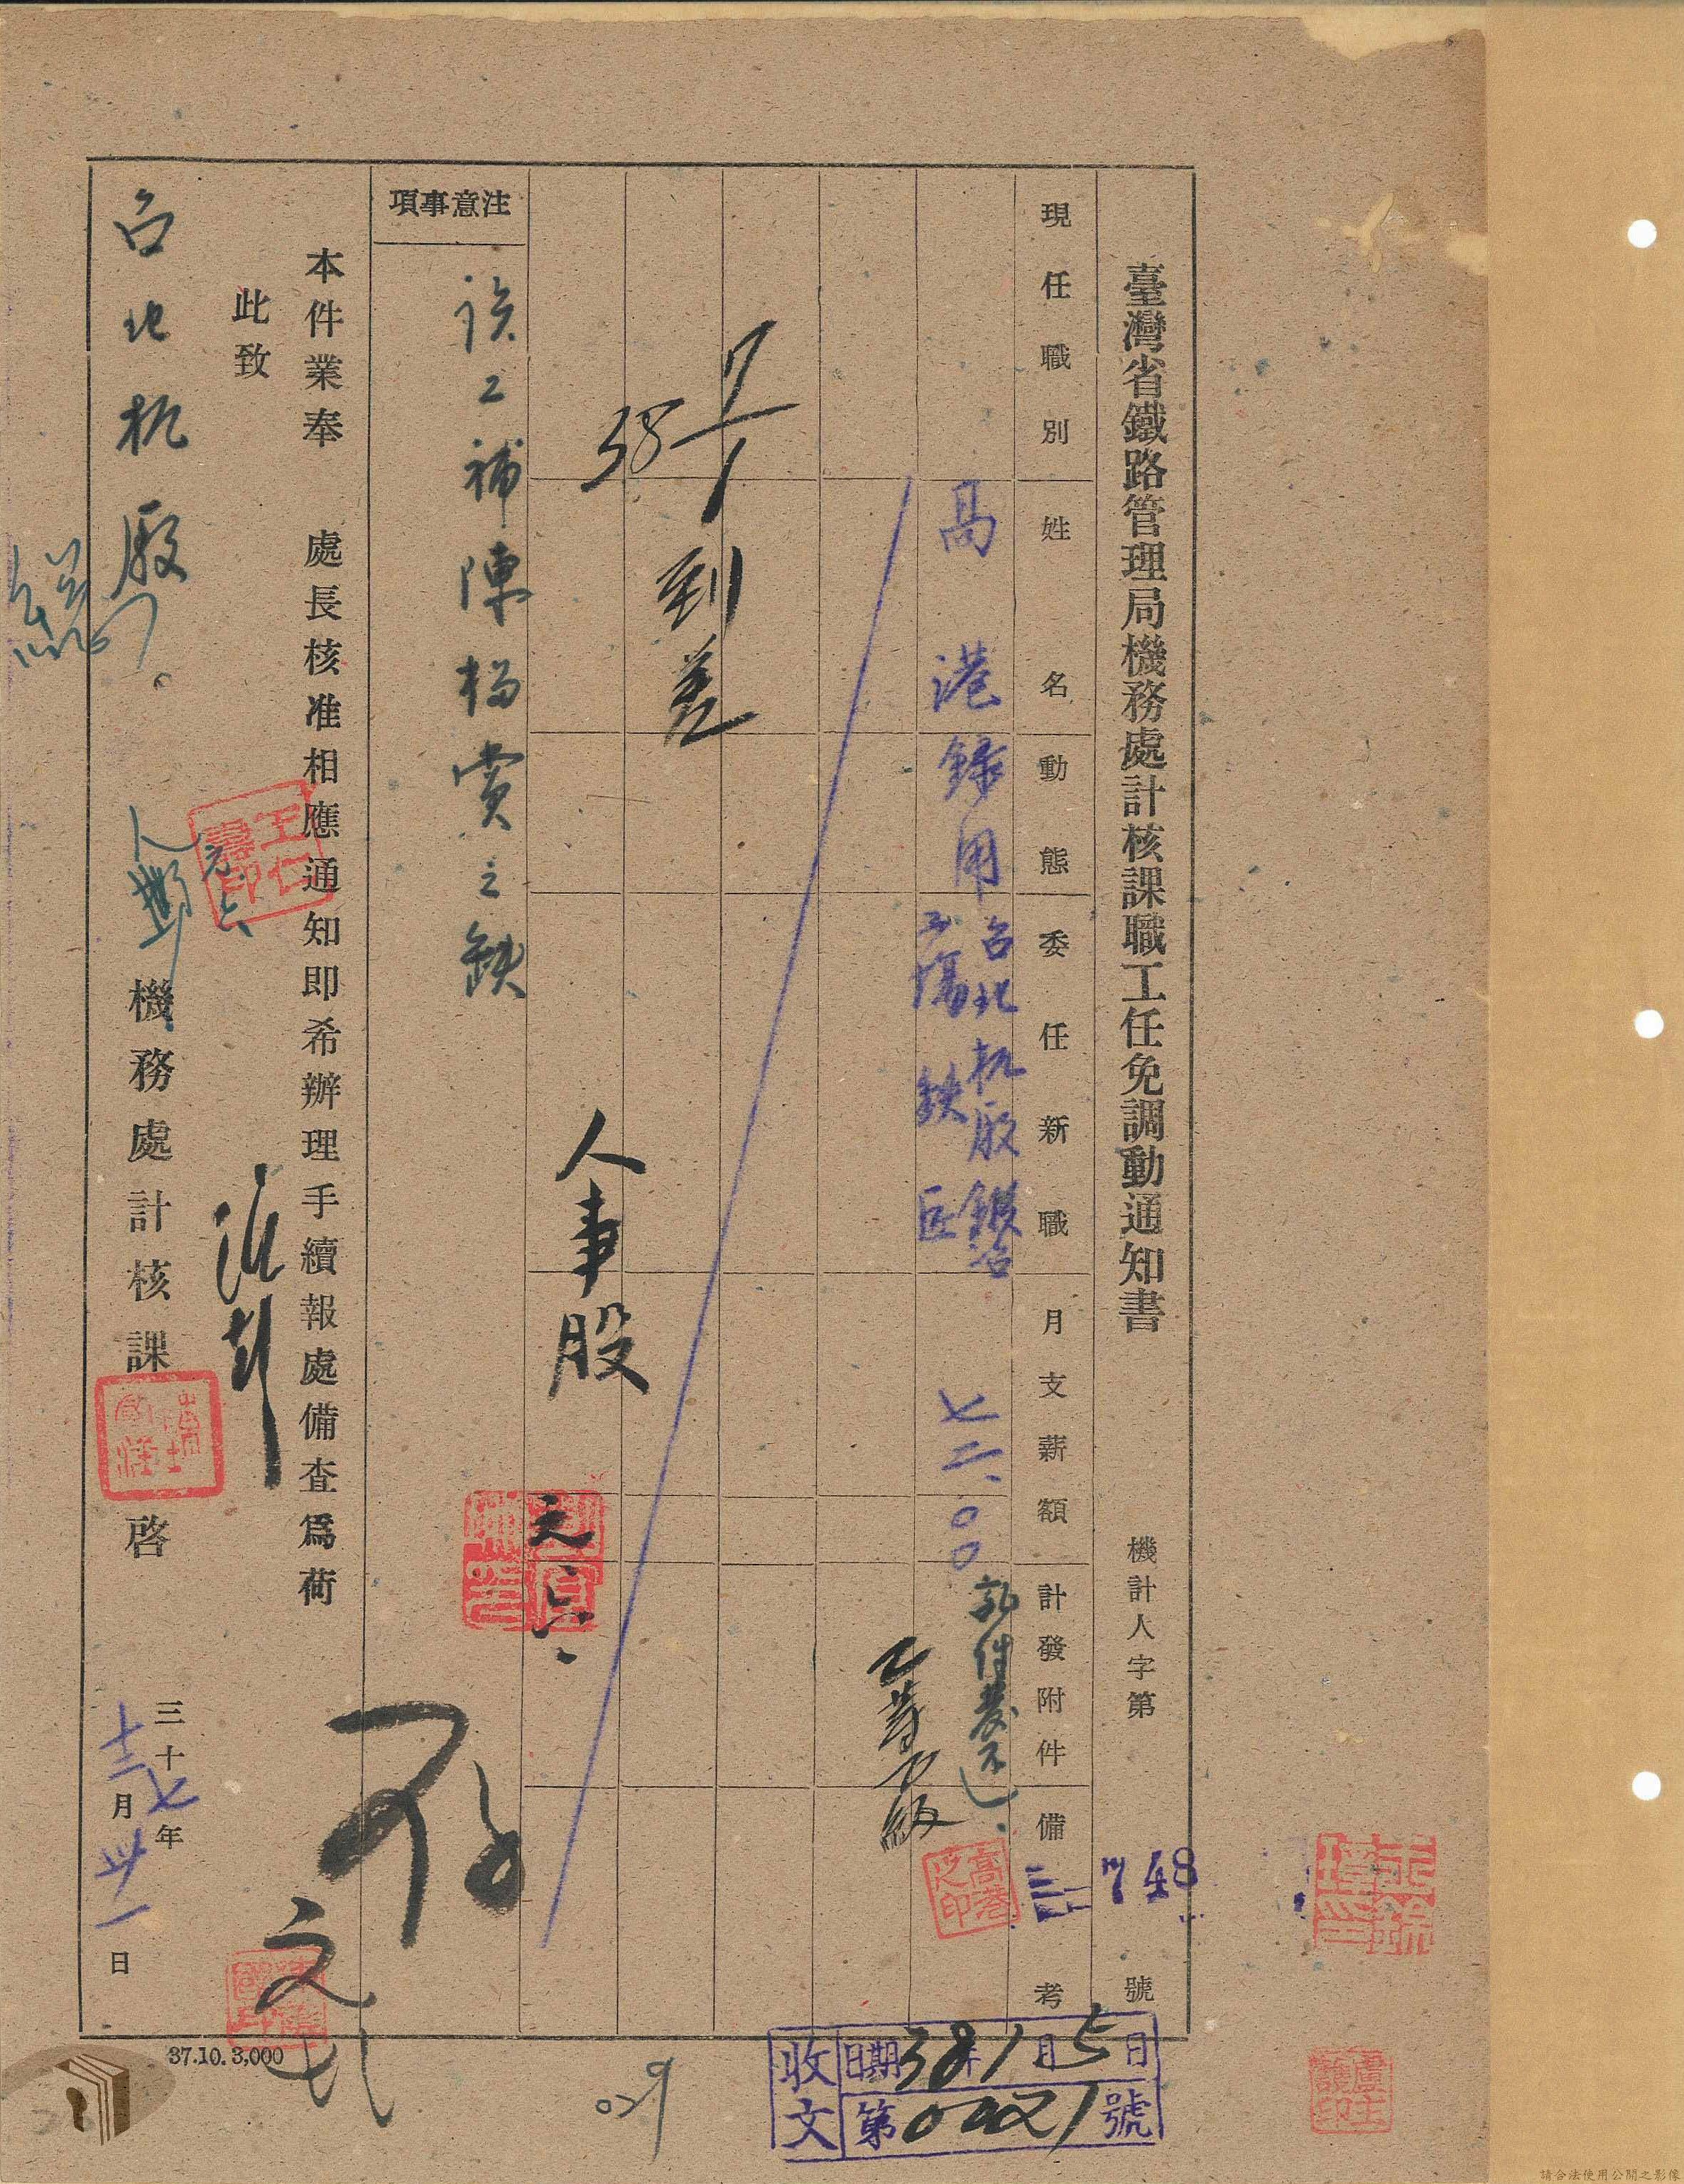 臺灣省鐵路管理局機務處計核課職工任免調動通知書
機計人字第748號
現任職別
姓名
動態
委任新職
月支薪額
計發附件
備考
高港
錄用
台北机廠鍛冶
工場鉄匠
七二.〇〇
乙等
高港之印
38 7/1 到差
人事股
注意事項
該工補陳楊賞之缺
本件業奉 處長核准相應通知即希辦理手續報處備查爲荷
此致
台北机廠
機務處計核課 啓
三十七年
十二月卅一日
王仁壽印
元六
元六
37.10. 3,000
029
收文
日期38年1月5日
第0021號
請合法使用公開之影像